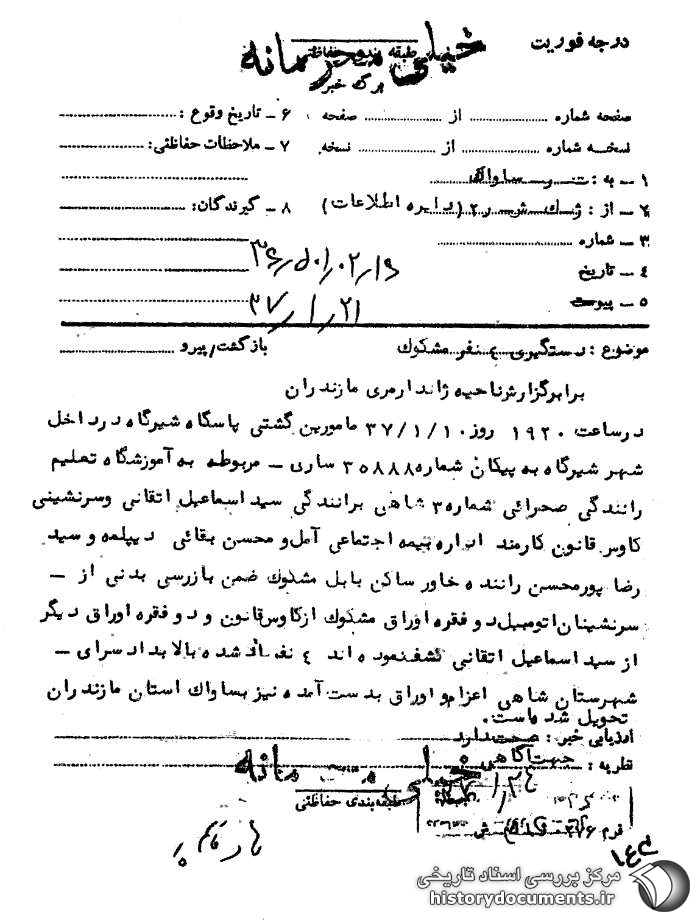 درجه فوریت
خیلی محرمانه
طبقه بندی حفاظتی
برگ خبر
صفحه شماره از صفحه
۶ ـ تاریخ وقوع :
نسخه شماره از نسخه
۷ ـ ملاحظات حفاظتی:
۱ ـ به : ساواک
۲ ـ از : ژاک ش ر۲ (دایره اطلاعات)
۸ ـ گیرندگان:
۳ ـ شماره
۴ ـ تاریخ
۵ ـ پیوست
۳۷/۱/۲۱
موضوع : دستگیری ٤ نفر مشکوک
بازگشت/پیرو
برابرگزارش ناحیه ژاندارمری مازندران
درساعت ۱۹۲۰ روز ۳۷/۱/۱۰ مامورین گشتی پاسگاه شیرگاه درداخل
شهر شیرگاه به پیکان شماره ۳۵۸۸۸ ساری ـ مربوطه به آموزشگاه تعلیم
رانندگی صحرائی شماره ۳ شاهی برانندگی سید اسماعیل اتقانی وسرنشینی
کاوس قانون کارمند اداره بیمه اجتماعی آمل و محسن بقائی دیپلمه و سید
رضا پورمحسن راننده خاور ساکن بابل مشکوک ضمن بازرسی بدنی از ـ
سرنشینان اتومبیل دو فقره اوراق مشکوک از کاوس قانون و دو فقره اوراق دیگر
از سید اسماعیل اتقانی کشف نموده اند ٤ نفر یاد شده بالا بدادسرای ـ
شهرستان شاهی اعزام و اوراق بدست آمده نیز بساواک استان مازندران
تحویل شده است.
ارزیابی خبر : صحت دارد
نظریه : جهت آگاهی
خیلی محرمانه
طبقه بندی حفاظتی
مرکز بررسی اسناد تاریخی
historydocuments.ir